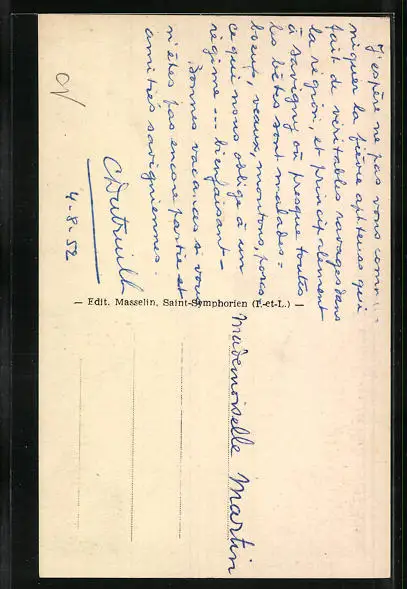 J'espère ne pas vous commu-
niquer la fièvre aphteuse qui
fait de véritables ravages dans
la région, et principalement
à Savigny où presque toutes
les bêtes sont malades :
boeufs, veaux, moutons, porcs
ce qui nous oblige à un
régime ... bienfaisant -
Bonnes vacances si vous
n'êtes pas encore partie et
amitiés savigniennes.
4-8-52
— Edit. Masselin, Saint-Symphorien (I.-et-L.) —
Mademoiselle Martin